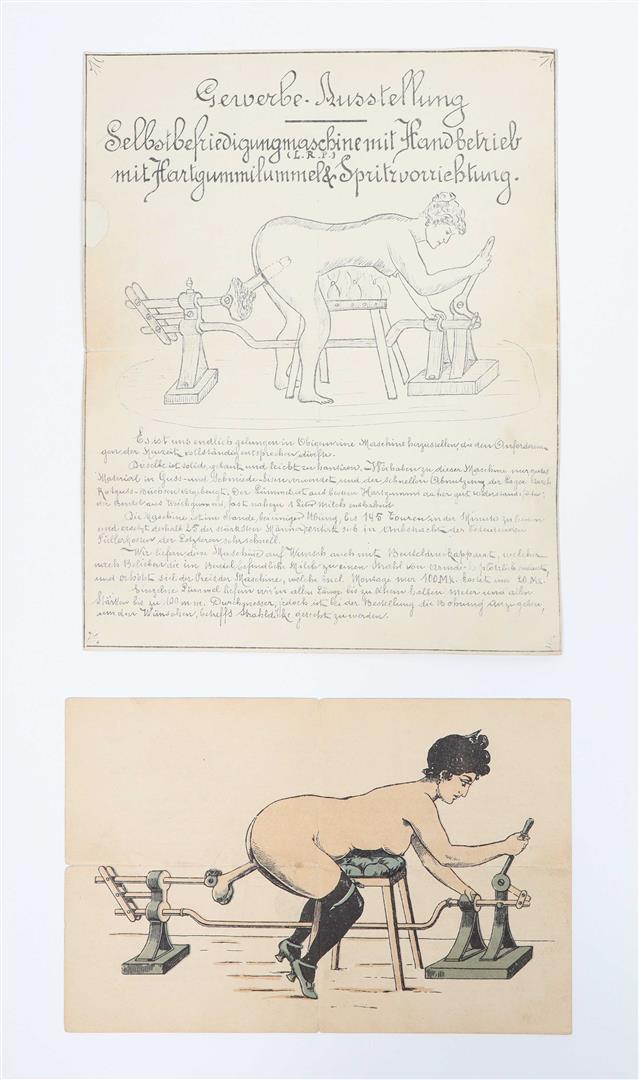 Gewerbe-Ausstellung
Selbstbefriedigungmaschine mit Handbetrieb
(L.R.P.)
mit Hartgummilümmel & Spritzvorrichtung.
Es ist uns endlich gelungen in Obigem eine Maschine herzustellen, die den Anforderun-
gen der Neuzeit vollständig entsprechen dürfte.
Dieselbe ist solide gebaut und leicht zu hantieren. Wir haben zu dieser Maschine nur gutes
Material in Guss- und Schmiede- verwendet und der schnellen Abnutzung der Lager durch
Rotguss-Büchsen vorgebeugt. Der Lümmel ist aus bestem Hartgummi daher gut
der Beutel aus Weichgummi, fast nahezu 1 Liter Milch enthaltend.
Die Maschine ist im Stande, bei einiger Übung, bis 145 Touren in der Minute zu
und ersetzt deshalb 25 der stärksten Männer sich in Anbetracht der bedeutenden
der Letzteren sehr schnell.
Wir liefern diese Maschine auf Wunsch auch mit Beuteldruckapparat, welcher
nach Belieben die im Beutel befindliche Milch zu einem Strahl von plötzlich
und erhöht sich der Preis der Maschine, welche incl. Montage nur 100 Mk. kostet um 20 Mk.
Einzelne Lümmel liefern wir in allen Längen bis zu einem halben Meter und allen
Stärken bis zu 100 m.m. Durchmesser, jedoch ist bei der Bestellung die Bohrung anzugeben,
um den Wünschen, betreffs Strahldicke gerecht zu werden.